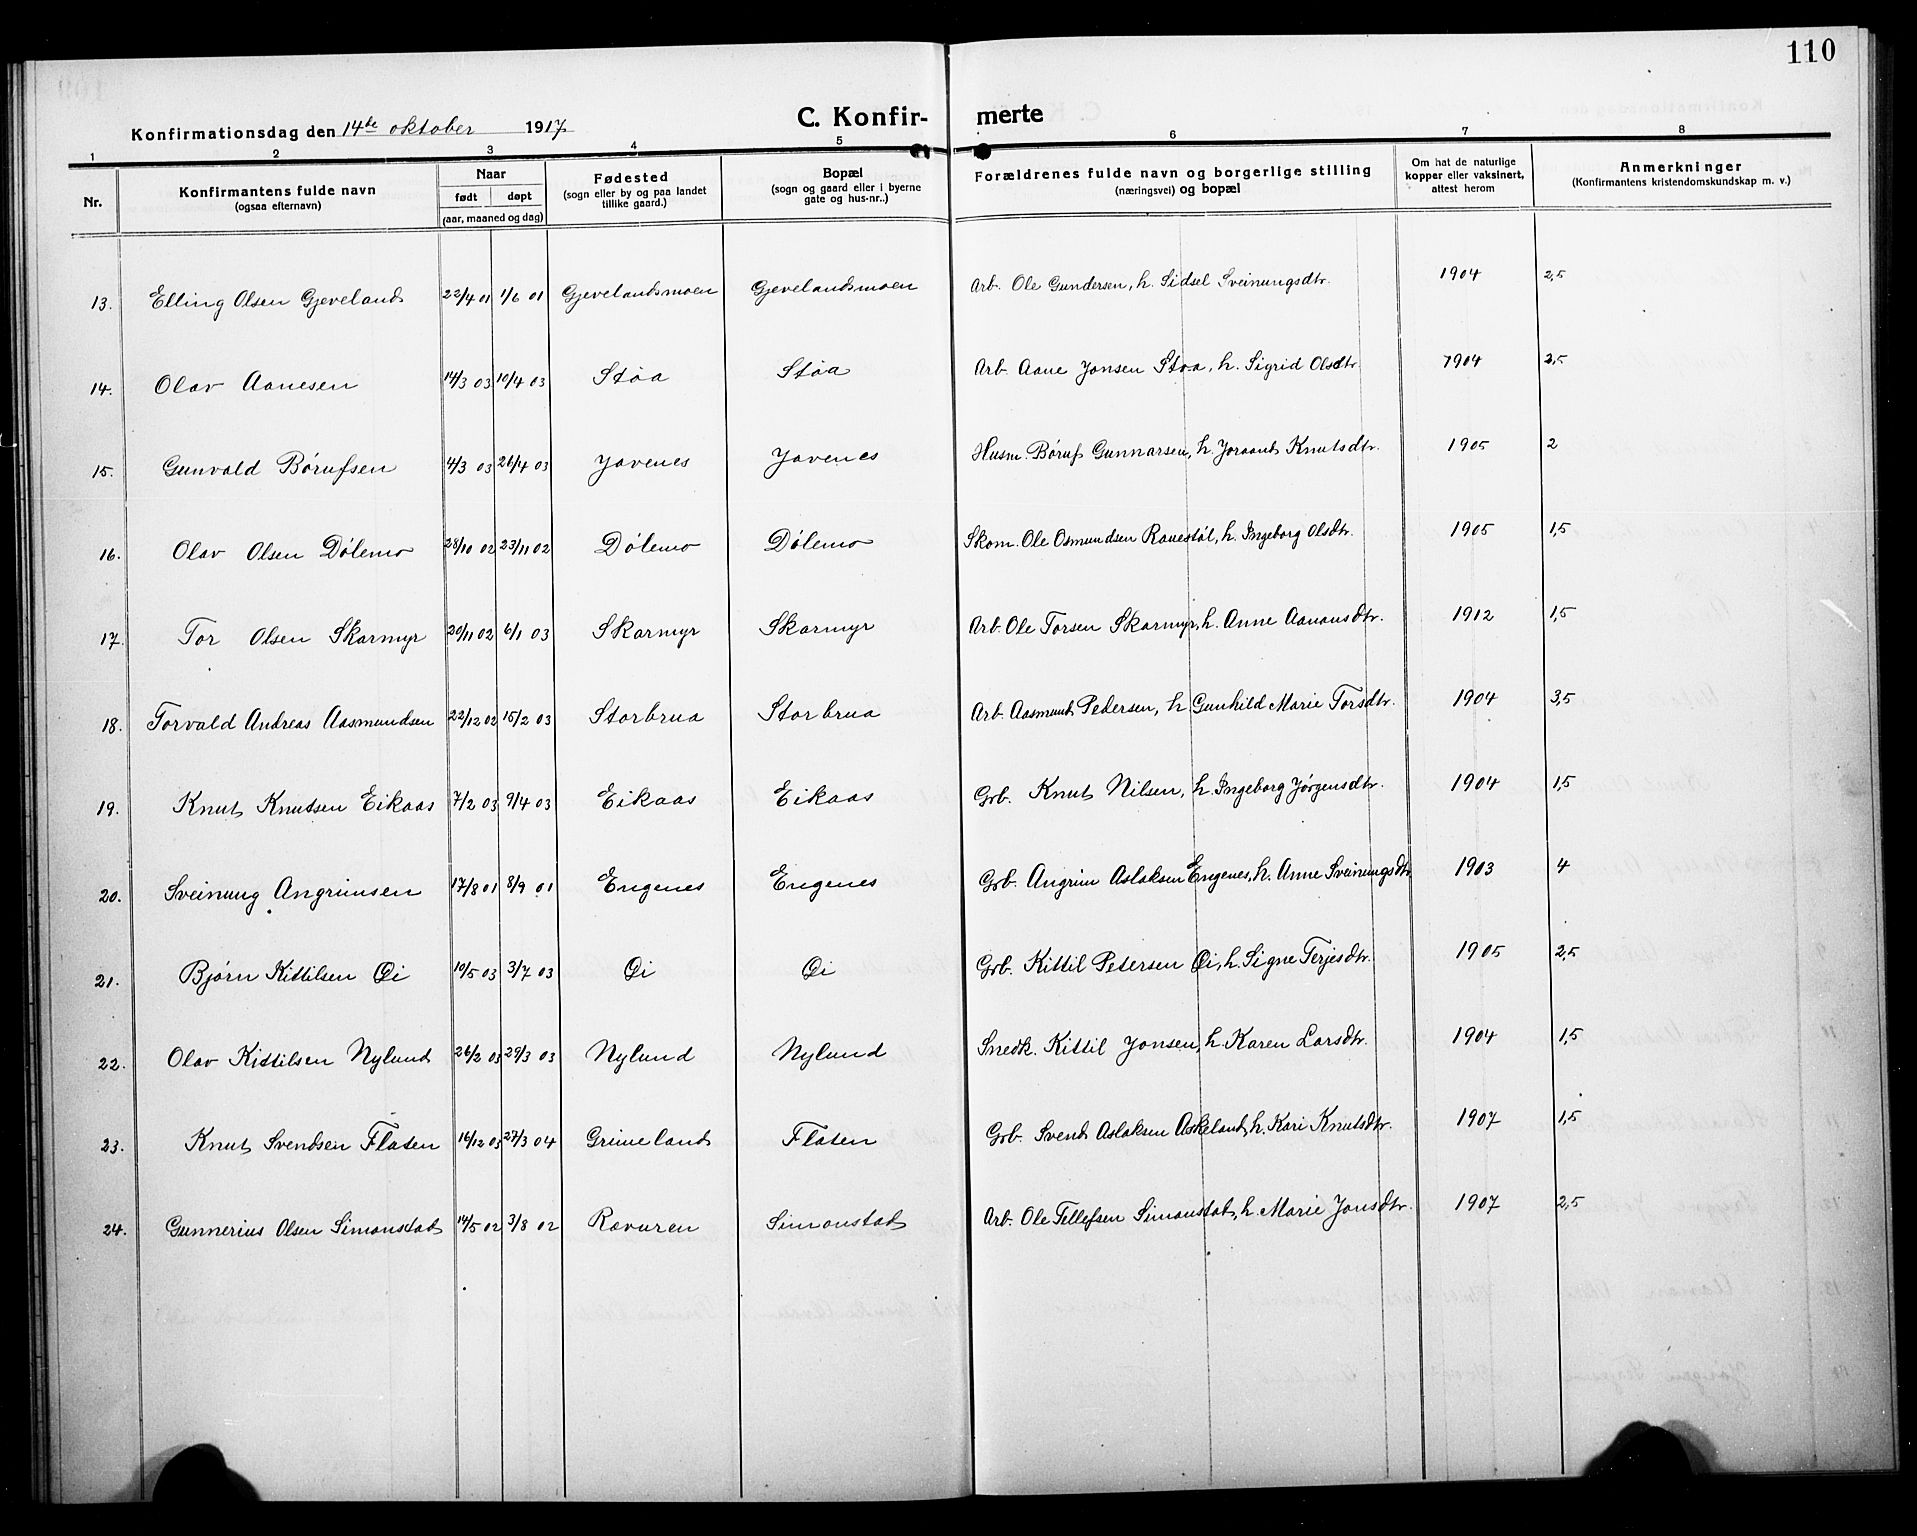 110
Konfirmationsdag den 14de oktober 1917
C. Konfirmerte
1 2 3 4 5 6 7 8
Nr. Konfirmantens fulde navn (ogsaa efternavn) Naar født døpt (aar, maaned og dag) Fødested (sogn eller by og paa landet tillike gaard.) Bopæl (sogn og gaard eller i byerne gate og hus-nr..) Forældrenes fulde navn og borgerlige stilling (næringsvei) og bopæl Om hat de naturlige kopper eller vaksinert, attest herom Anmerkninger (Konfirmantens kristendomskundskap m. v.)
13. Elling Olsen Gjeveland 22/4 01 1/6 01 Gjevelandsmoen Gjevelandsmoen Arb. Ole Gundersen, h. Sidsel Sveinungsdtr. 1904 2,5
14. Olav Aanesen 14/3 03 10/4 03 Støa Støa Arb. Aane Jonsen Støa, h. Sigrid Olsdtr. 1904 2,5
15. Gunvald Børufsen 4/3 03 26/4 03 Jovenes Jovenes Husm. Børuf Gunnarsen, h. Joraand Knutsdtr. 1905 2
16. Olav Olsen Dølemo 28/10 02 23/11 02 Dølemo Dølemo Skom. Ole Osmundsen Rauestøl, h. Ingeborg Olsdtr. 1905 1,5
17. Tor Olsen Skarmyr 20/11 02 6/1 03 Skarmyr Skarmyr Arb. Ole Torsen Skarmyr, h. Anne Aanonsdtr. 1912 1,5
18. Torvald Andreas Aasmundsen 22/12 02 15/2 03 Storbrua Storbrua Arb. Aasmund Pedersen, h Gunhild Marie Torsdtr. 1904 3,5
19. Knut Knutsen Eikaas 7/2 03 9/4 03 Eikaas Eikaas Grb. Knut Nilsen, h. Ingeborg Jørgensdtr. 1904 1,5
20. Sveinung Angrimsen 17/8 01 8/9 01 Engenes Engenes Grb. Angrim Aslaksen Engenes, h. Anne Sveinungsdtr 1903 4
21. Bjørn Kittilsen Øi 10/5 03 3/7 03 Øi Øi Grb. Kittil Petersen Øi, h. Signe Terjesdtr. 1905 2,5
22. Olav Kittilsen Nylund 26/2 03 29/3 03 Nylund Nylund Snedk. Kittil Jonsen, h. Karen Larsdtr. 1904 1,5
23. Knut Svendsen Flaten 16/12 03 27/3 04 Grimeland Flaten Grb. Svend Aslaksen Askeland, h. Kari Knutsdtr. 1907 1,5
24. Gunnerius Olsen Simonstad 14/5 02 3/8 02 Rovuren Simonstad Arb. Ole Tellefsen Simonstad, h. Marie Jonsdtr. 1907 2,5